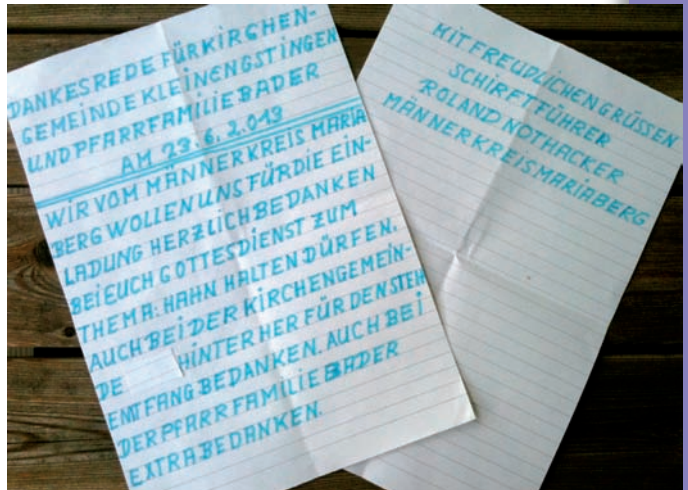 DANKESREDE FÜR KIRCHEN-
GEMEINDE KLEINENGSTINGEN
UND PFARRFAMILIE BADER
AM 23.6.2.013
WIR VOM MÄNNERKREIS MARIA
BERG WOLLEN UNS FÜR DIE EIN-
LADUNG HERZLICH BEDANKEN
BEI EUCH GOTTESDIENST ZUM
THEMA: HAHN HALTEN DÜRFEN.
AUCH BEI DER KIRCHENGEMEIN-
DE HINTER HER FÜR DEN STEH
EMTFANG BEDANKEN. AUCH BEI
DER PFARRFAMILIE BADER
EXTRA BEDANKEN.
MIT FREUDLICHEN GRÜSSEN
SCHIRFTFÜHRER
ROLAND NOTHACKER
MÄNNERKREIS MARIABERG